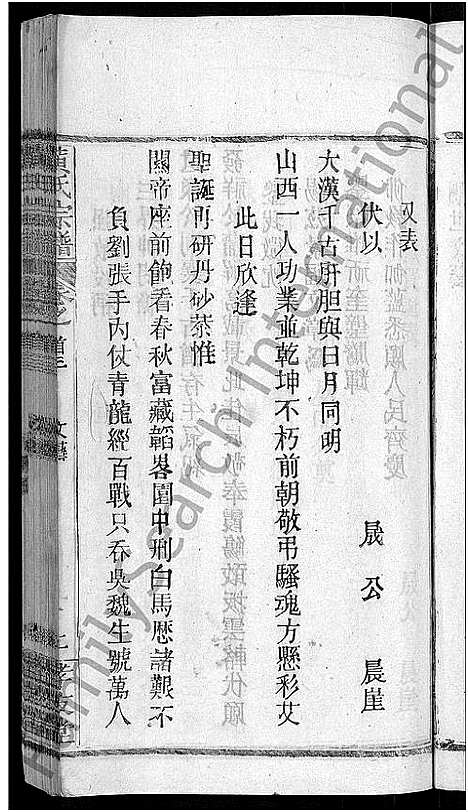 又表
伏以　晟公　晨崖
大漢千古肝胆與日月同明
山西一人功業並乾坤不朽前朝敬弔騷魂方懸彩艾
此日欣逢
聖誕再研丹砂恭惟
關帝座前飽看春秋富藏韜畧園中刑白馬歷諸艱不
負劉張手內仗青龍經百戰只吞吳魏生號萬人
氏宗譜
卷之首
FamilySearch International